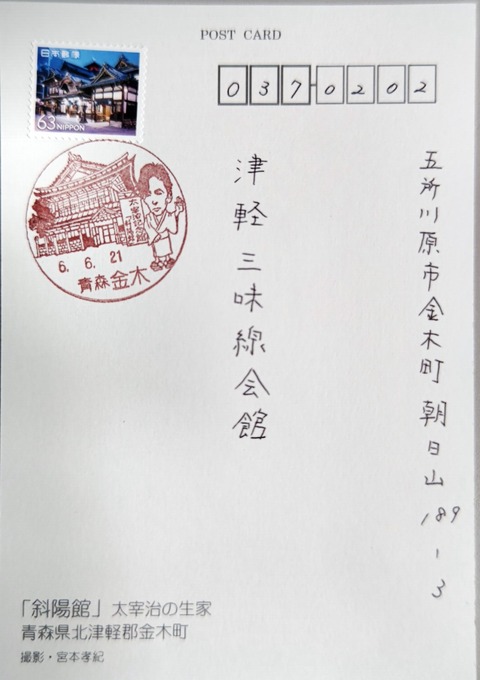 POST CARD
日本郵便
63 NIPPON
037-0202
五所川原市金木町朝日山189-3
津軽三味線会館
太宰治記念館
「斜陽館」
6.6.21
青森 金木
「斜陽館」太宰治の生家
青森県北津軽郡金木町
撮影・宮本孝紀